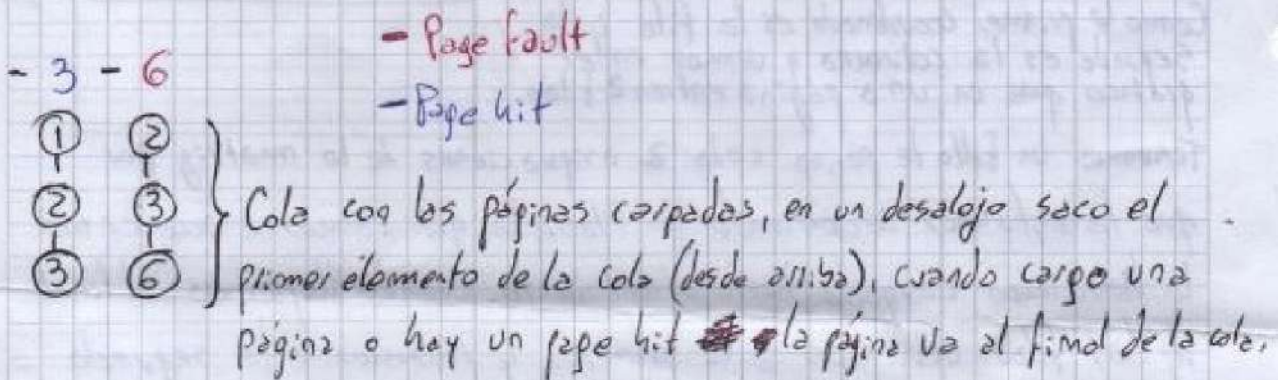 - Page fault
- 3 - 6
- Page hit
1 2
2 3
3 6
Cola con las páginas cargadas, en un desalojo saco el
primer elemento de la cola (desde arriba), cuando cargo una
página o hay un page hit la página va al final de la cola.